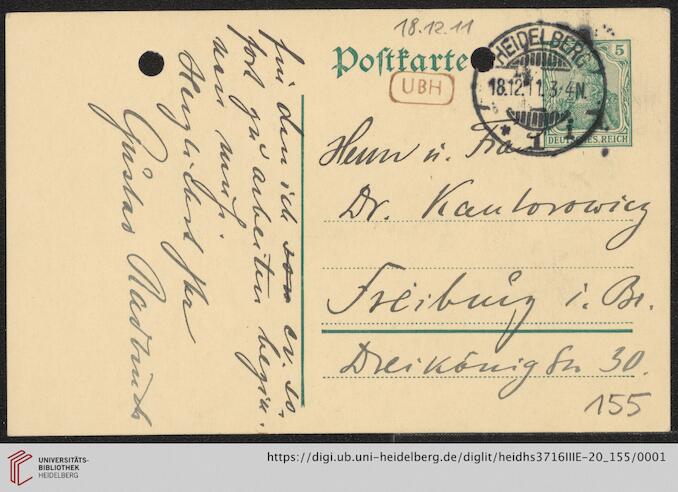 18.12.11
Postkarte
UBH
HEIDELBERG
18.12.11.3-4N.
* 1 i
5
DEUTSCHES REICH
Herrn u. Frau
Dr. Kantorowicz
Freiburg i. Br.
Dreikönigstr. 30.
155
für den ich von ev. so-
fort zu arbeiten begin-
nen muß.
Herzlichst Ihr
Gustav Radbruch
UNIVERSITÄTS-
BIBLIOTHEK
HEIDELBERG
https://digi.ub.uni-heidelberg.de/diglit/heidhs3716IIIE-20_155/0001